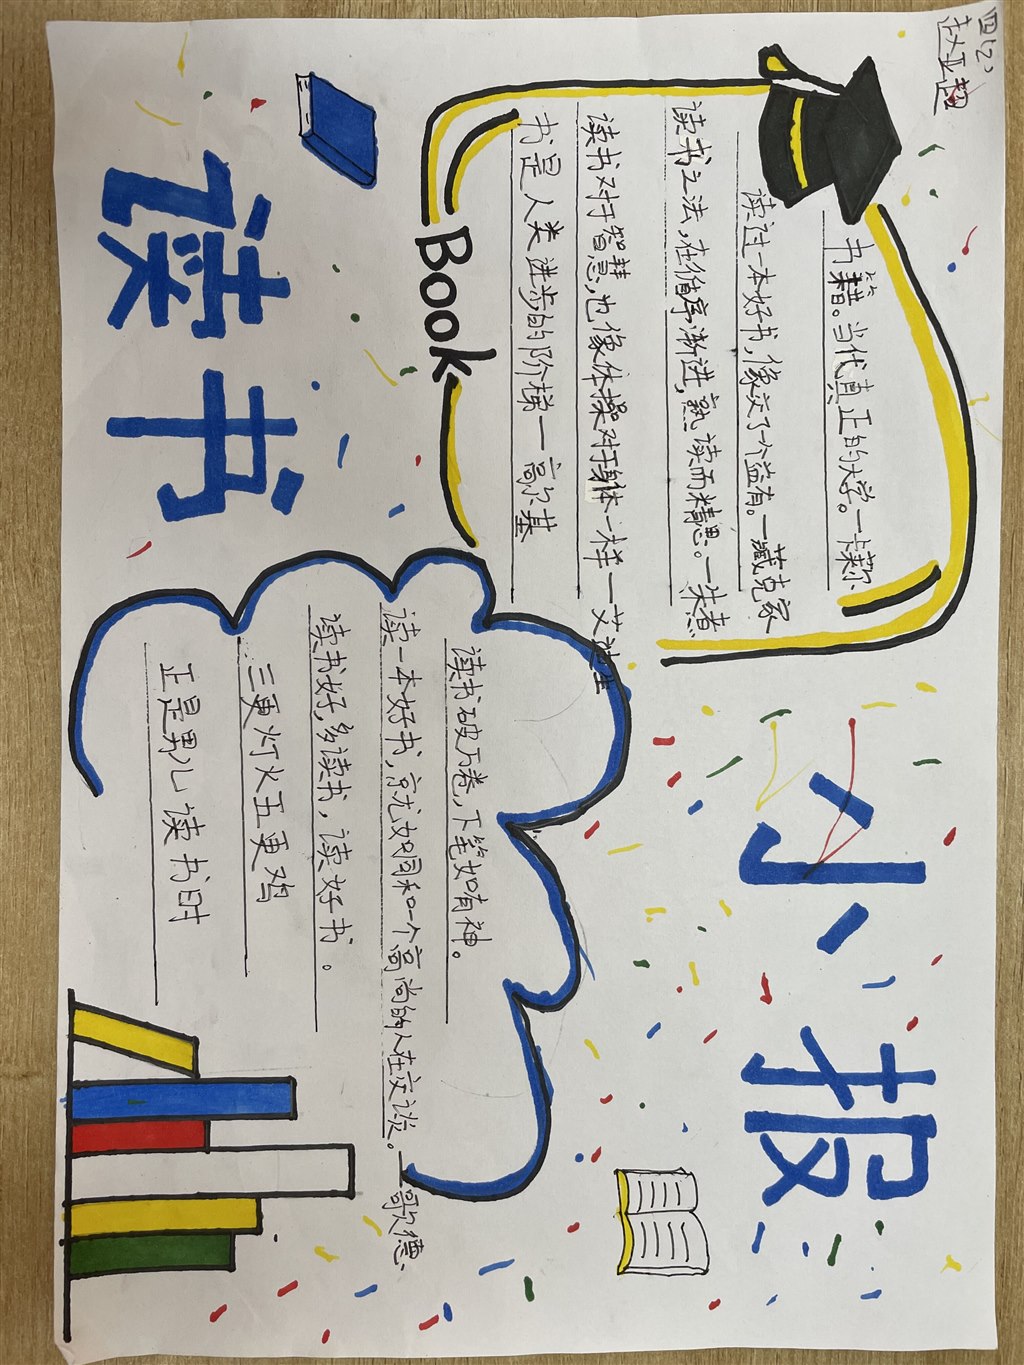 四(2)
赵亚超
读书
小报
Book
书籍。当代真正的大学。一卡莱尔
读过一本好书,像交了个益有。一臧克家
读书之法,在循序渐进,熟读而精思。一朱熹
读书对于智慧,也像体操对于身体一样一艾迪生
书是人类进步的阶梯一高尔基
读书破万卷,下笔如有神。
读一本好书,就如同和一个高尚的人在交谈。一歌德
读书好,多读书,读好书。
三更灯火五更鸡
正是男儿读书时